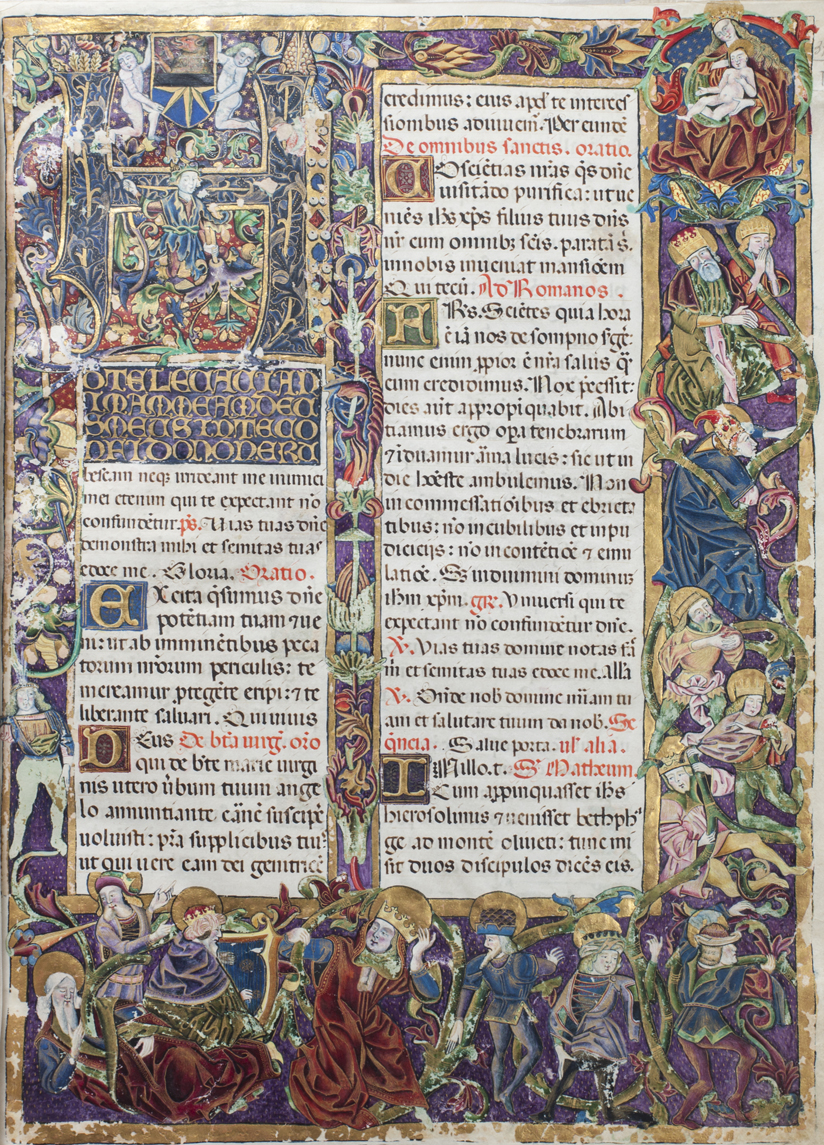 D TE LEVAVI AN
IMAM MEAM DEU
S MEUS IN TE CO
NFIDO NON ERU
bescam neqʒ irrideant me inimici
mei etenim qui te expectant nō
confundētur. p̄s. Vias tuas dn̄e
demonstra mihi et semitas tuas
edoce me. Gloria. Oratio.
Excita q̄sumus dn̄e
potētiam tuam ⁊ ue
ni: ut ab imminētibus peca
torum nr̄orum periculis: te
mereamur ꝓtegēte eripi: ⁊ te
liberante saluari. Qui uiuis
Deus De bt̄a uirg̅. or̄o
qui de bt̄e marie uirgi
nis utero ūbum tuum ange
lo annuntiante cārnē suscipe̅
uoluisti: pr̄a supplicibus tuis
ut qui uere eam dei genitricē
credimus: eius apd̄ te interces
sionibus adiuuem̄. Per eundē
De omnibus sanctis. oratio.
Cōsciētias nr̄as q̄s dn̄e
uisitādo purifica: ut ue
niēs ih̄s xp̄s filius tuus dn̄s
nr̄ cum omnibʒ sc̄is. paratā s̄.
in nobis inueniat mansiōem
Qui tecū. Ad Romanos.
Frs̄. Sciētes quia hora
ē iā nos de sompno sg̅e
nunc enim ꝓpior ē nr̄a salus q̄
cum credidimus. Nox p̄cessit:
dies aūt appropīquabit. Abi
tiamus ergo op̄a tenebrarum
⁊ īduamur arma lucis: sic ut in
die hōeste ambulemus. Non
in commessatiōibus et ebrieta
tibus: nō in cubilibus et inpu
diciciis: nō in contētiōe ⁊ emu
latiōe. S̄ induimini dominum
ih̄m xp̄m. gr̄. Vniuersi qui te
expectant nō confundētur dn̄e.
℣. Vias tuas domine notas fā
m̄ et semitas tuas edoce me. All̄a
℣. Ostēde nob̄ domine mīam tu
am et salutare tuum da nob̄. Se
quēcia. Salue porta. ul̄ alia.
In illo. t. S. Matheum.
Cum appinquasset ih̄s
hierosolimis ⁊ uenisset bethph̄
ge ad montē oliueti: tunc mi
sit duos discipulos dicēs eis.